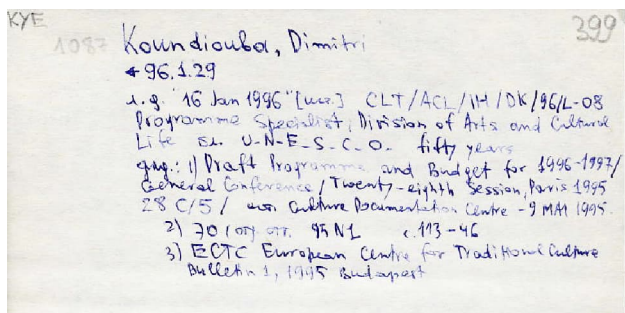 KYE 399
1087 Koundiouba, Dimitri
96.1.29
"16 Jan 1996" CLT/ACL/IH/DK/96/L-08
Programme Specialist, Division of Arts and Cultural
Life U-N-E-S-C-O- fifty years
1) Draft Programme and Budget for 1996-1997/
General Conference/Twenty-eighth Session, Paris 1995
28 C/5/ Culture Documentation Centre - 9 MAI 1995.
2) 95 N1 c.113-46
3) ECTC European Centre for Traditional Culture
Bulletin 1, 1995 Budapest